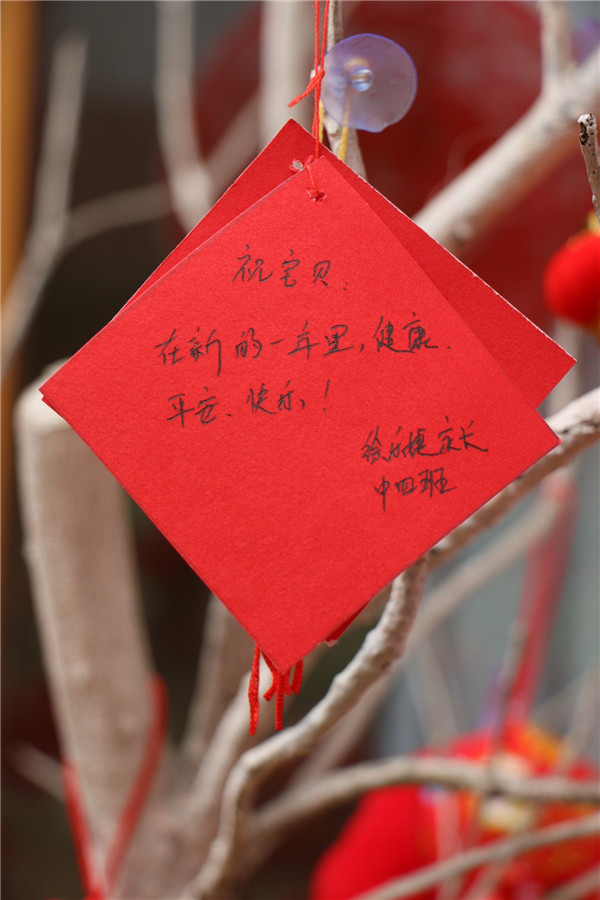 祝宝贝、
在新的一年里,健康、
平安、快乐!
徐乐婕家长
中四班